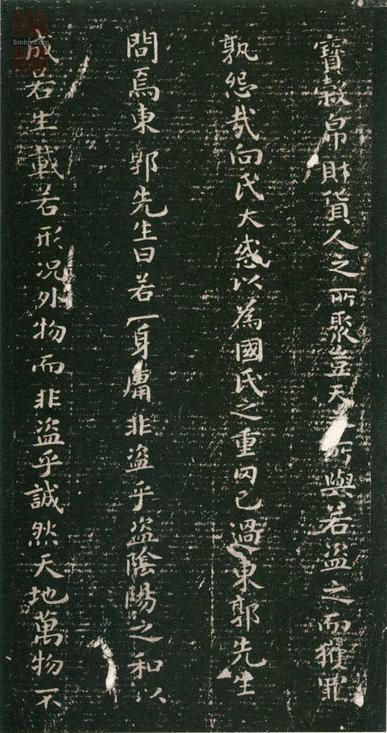 寶穀帛財貨人之所聚豈天之所與若盜之而獲罪
孰怨哉向氏大惑以為國氏之重罔己過東郭先生
問焉東郭先生曰若一身庸非盜乎盜陰陽之和以
成若生載若形況外物而非盜乎誠然天地萬物不